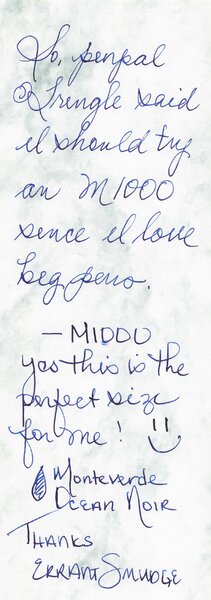 So, penpal
Tringle said
I should try
an M1000
since I love
big pens.
— M1000
yes this is the
perfect size
for me!
Monteverde
Ocean Noir
Thanks
Errant Smudge